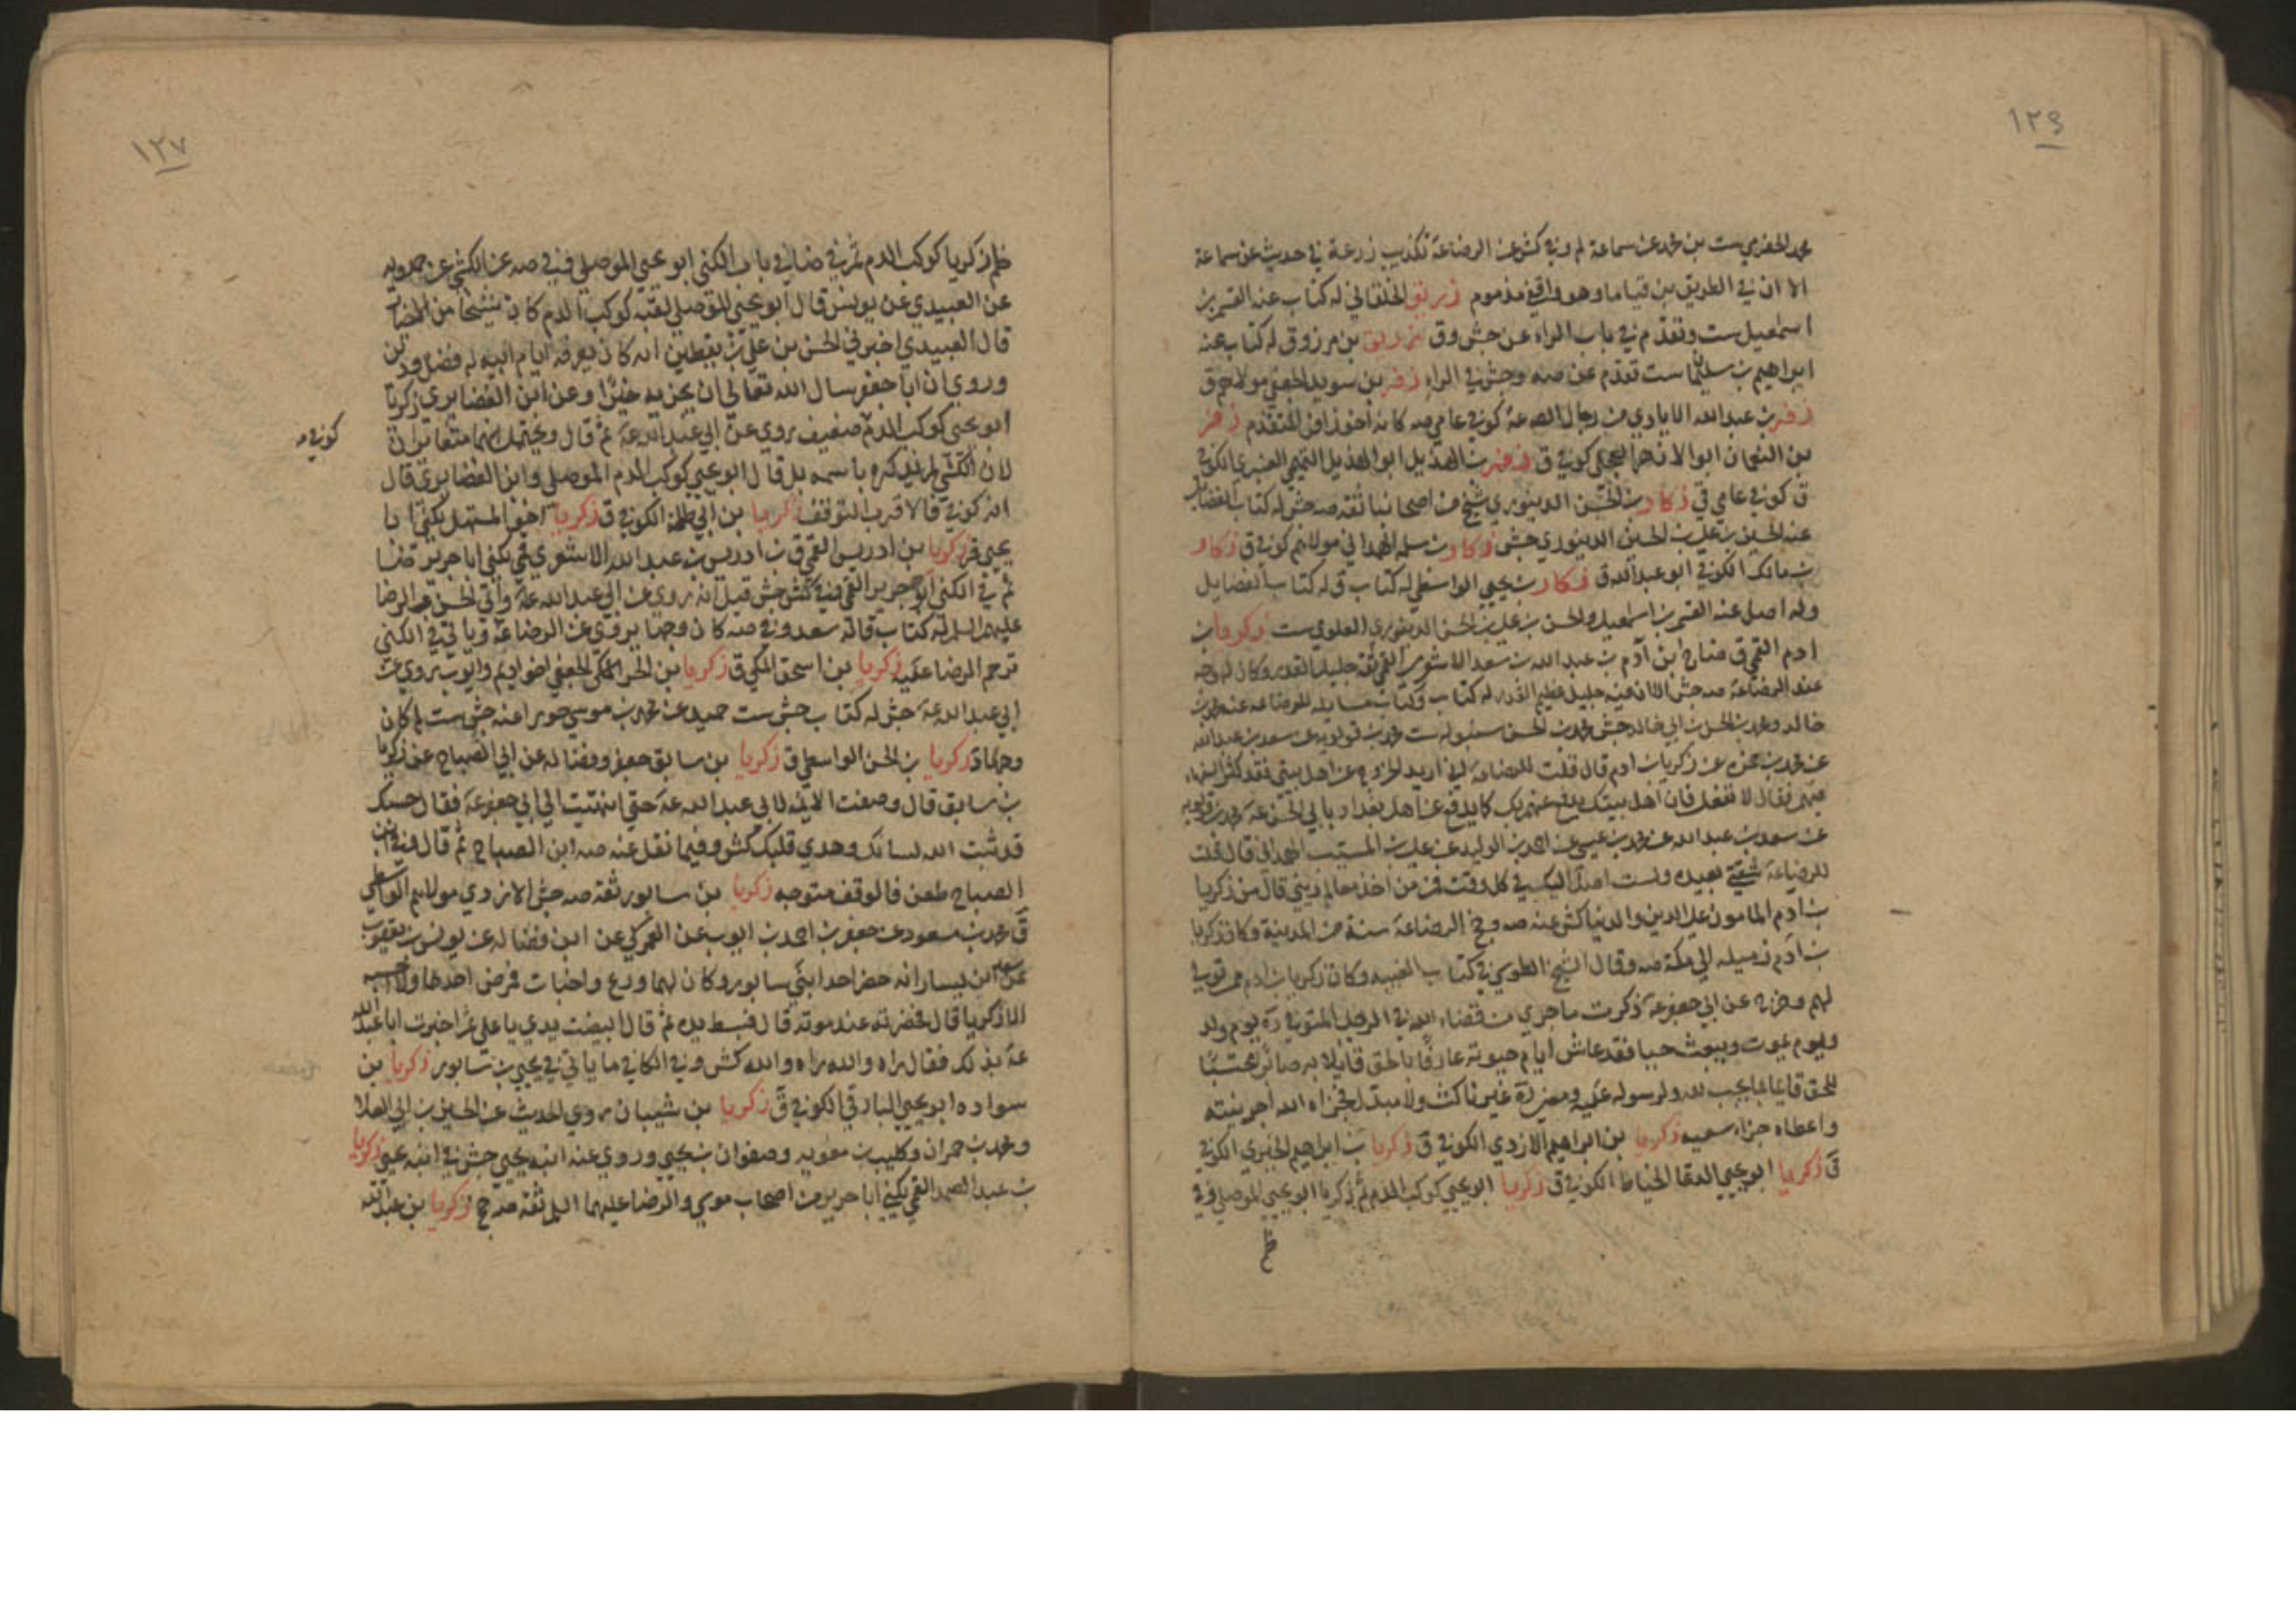 ١٢٩
محمد الحضرمي ست بن محمد عن سماعة لم وفي كش عن الرضا عه تكذيب زرعة في حديث عن سماعة
الا ان في الطريق بن قياما وهو واقفي مذموم زريق الخلقاني له كتاب عنه القسم بن
اسمعيل ست وتقدم في باب الراء عن جش وق زريق بن مرزوق له كتاب عنه
ابراهيم بن سليمان ست تقدم عن صه وجش في الراء زفر بن سويد الجعفي مولاهم ق
زفر بن عبد الله الايادي من رجال الصه عه كوفي عامي صه كانه اخوذ من المتقدم زفر
بن النعمان ابو الازهر العجلي كوفي ق زفر بن الهذيل ابو الهذيل التميمي العنبري الكوفي
ق كوفي عامي قي زكار بن الحسن الدينوري شيخ من اصحابنا ثقه صه جش له كتاب الفضايل
عنه الحسين بن علي بن الحسن الدينوري جش زكار بن سلمه الهمداني مولاهم كوفي ق زكار
بن مالك الكوفي ابو عبد الله ق زكار بن يحيى الواسطي له كتاب ق له كتاب الفضايل
وله اصل عنه القسم بن اسمعيل والحسن بن علي بن الحسن الدينوري العلوي ست زكريا بن
ادم القمي ق ضا دح ابن آدم بن عبد الله بن سعد الاشعري القمي ثقة جليل القدر وكان له وجه
عند الرضا عه صه جش الا ان فيه جليل عظيم القدر له كتاب وكتاب مسايله للرضا عه عنه محمد بن
خالد ومحمد بن الحسن بن ابي خالد جش محمد بن الحسن سنبوله ست محمد بن قولويه عن سعد بن عبد الله
عن محمد بن حمزه عن زكريا بن ادم قال قلت للرضا عه اني اريد الخروج عن اهل بيتي فقد كثر السفهاء
فيهم فقال لا تفعل فان اهل بيتك يدفع عنهم بك كما يدفع عن اهل بغداد بابي الحسن عه محمد بن قولويه
عن سعد بن عبد الله عن محمد بن عيسى عن احمد بن الوليد عن علي بن المسيب الهمداني قال قلت
للرضا عه شقتي بعيده ولست اصل اليك في كل وقت فمن من اخذ معالم ديني قال من زكريا
بن ادم المامون على الدين والدنيا كش عنه صه وحج الرضا عه سنة من المدينة وكان زكريا
بن آدم زميله الى مكة صه وقال الشيخ الطوسي في كتاب الغيبه وكان زكريا بن ادم ممن تولي
لهم وخرج عن ابي جعفر عه ذكرت ما جرى من قضاء الله في الرجل المتوفي ره يوم ولد
ويوم يموت ويبعث حيا فقد عاش ايام حيوته عارفا بالحق قايلا به صابرا محتسبا
للحق قايما بما يجب لله ولرسوله عليه ومضى ره غير ناكث ولا مبدل فجزاه الله اجر نيته
واعطاه جزاء سعيه زكريا بن ابراهيم الازدي الكوفي ق زكريا بن ابراهيم الحيري الكوفي
ق زكريا ابو يحيى الدعا الخياط الكوفي ق زكريا ابو يحيى كوكب الدم ثم زكريا ابو يحيى الموصلي وفي
١٢٧
ظم زكريا كوكب الدم ثم في ضا في باب الكنى ابو يحيى الموصلي ففي صه عن الكشي عن حمدويه
عن العبيدي عن يونس قال ابو يحيى الموصلي لقبه كوكب الدم كان شيخا من الاخيار
قال العبيدي اخبرني الحسن بن علي بن يقطين انه كان يعرفه ايام ابيه له فضل ودين
وروي ان ابا جعفر سال الله تعالى ان يجزيه خيرا وعن ابن الغضايري زكريا
ابو يحيى كوكب الدم ضعيف روى عن ابي عبد الله عه ثم قال ويحتمل انهما متغايران
كوفي صه
لان الكشي لم يذكره باسمه بل قال ابو يحيى كوكب الدم الموصلي وابن الغضايري قال
انه كوفي فالاقرب التوقف زكريا بن ابي طلحة الكوفي ق زكريا اخو المستهل يكنى ابا
يحيى قر زكريا بن ادريس القمي ق بن ادريس بن عبد الله الاشعري قمي يكنى ابا جرير ضا
ثم في الكنى ابو جرير القمي وفي كش جش قيل انه روى عن ابي عبد الله عه وابي الحسن والرضا
عليهم السلم له كتاب قاله سعد وفي صه كان وجها يروي عن الرضا عه وياتي في الكنى
ترحم الرضا عليه زكريا بن اسحق المكي ق زكريا بن الحر الجعفي اخو اديم وايوب يروي عن
ابي عبد الله عه جش له كتاب جش ست حميد عن محمد بن موسى حورا عنه جش ست لم كان
وحكاه زكريا بن الحسن الواسطي ق زكريا بن سابق جعفر وفضاله عن ابي الصباح عن زكريا
بن سابق قال وصفت الائمه لابي عبد الله عه حتى انتهيت الى ابي جعفر عه فقال حسبك
قد ثبت الله لسانك وهدى قلبك كش وفيما نقل عنه صه ابن الصباح ثم قال في ابن
الصباح طعن فالوقف متوجه زكريا بن سابور ثقة صه جش الازدي مولاهم الواسطي
ق محمد بن مسعود عن جعفر بن احمد بن ايوب عن العمركي عن ابن فضاله عن يونس بن يعقوب
عن سعيد بن يسار انه حضر احد ابني سابور وكان لهما ورع واخبات فمرض احدهما ولا احسبه
الا زكريا قال فحضرته عند موته قال فبسط يده ثم قال ابيضت يدي يا علي ثم اخبرت ابا عبد الله
عه بذلك فقال راه والله راه والله كش وفي الكافي ما ياتي في يحيى بن سابور زكريا بن
سواده ابو يحيى البارقي الكوفي ق زكريا بن شيبان روى الحديث عن الحسين بن ابي العلا
ومحمد بن حمران وكليب بن معويه وصفوان بن يحيى وروى عنه ابنه يحيى جش في ابنه يحيى زكريا
بن عبد الصمد القمي يكنى ابا جرير من اصحاب موسى والرضا عليهما السلم ثقة صه جخ زكريا بن عبد الله